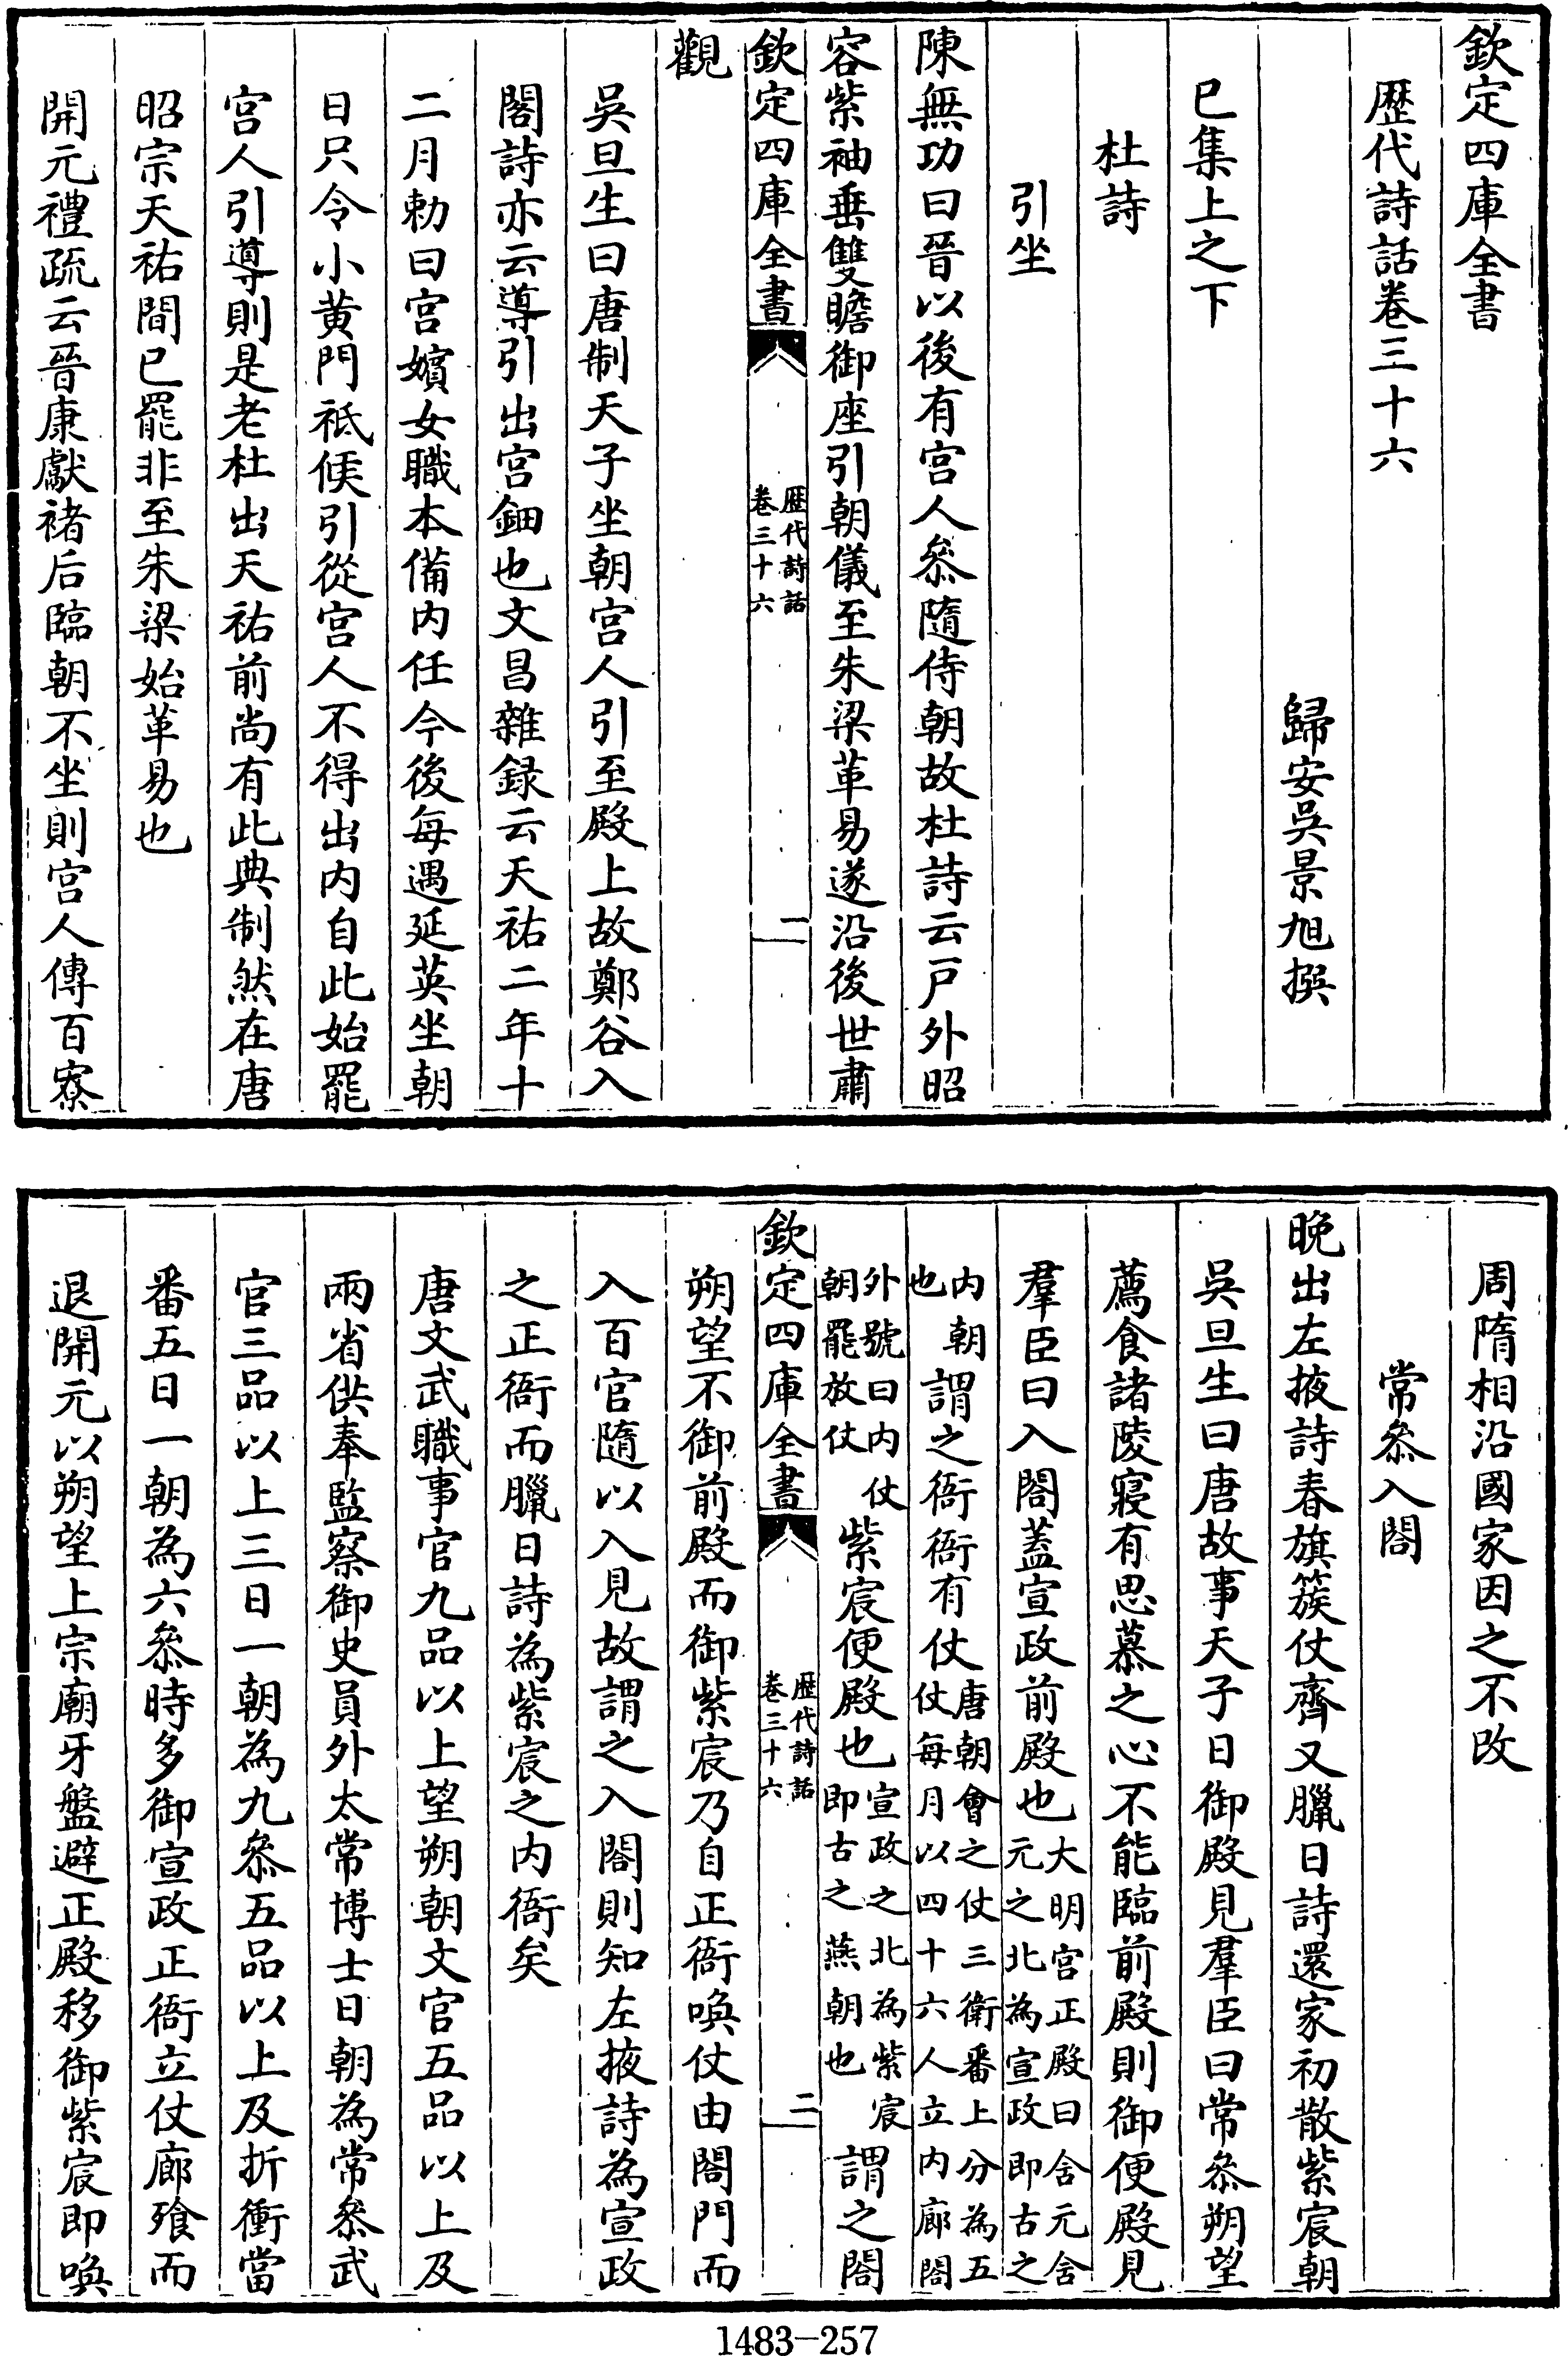 欽定四庫全書
歷代詩話卷三十六
歸安吳景旭撰
已集上之下
杜詩
引坐
陳無功曰晉以後有宮人叅隨侍朝故杜詩云戸外昭
容紫袖垂雙瞻御座引朝儀至朱梁革易遂沿後世肅
欽定四庫全書
歷代詩話
卷三十六
一
觀
吳旦生曰唐制天子坐朝宮人引至殿上故鄭谷入
閣詩亦云導引出宮鈿也文昌雜録云天祐二年十
二月勅曰宮嬪女職本備内任今後每遇延英坐朝
日只令小黄門祗候引從宮人不得出内自此始罷
宮人引導則是老杜出天祐前尚有此典制然在唐
昭宗天祐間已罷非至朱梁始革易也
開元禮疏云晉康獻褚后臨朝不坐則宮人傳百寮
周隋相沿國家因之不改
常叅入閤
晚出左掖詩春旗簇仗齊又臘日詩還家初散紫宸朝
吳旦生曰唐故事天子日御殿見羣臣曰常叅朔望
薦食諸陵寢有思慕之心不能臨前殿則御便殿見
羣臣曰入閤蓋宣政前殿也
大明宮正殿曰含元含
元之北為宣政即古之
内朝
也
謂之衙衙有仗
唐朝會之仗三衛番上分為五
仗每月以四十六人立内廊閤
外號曰内仗
朝罷放仗
紫宸便殿也
宣政之北為紫宸
即古之燕朝也
謂之閤
欽定四庫全書
歷代詩話
卷三十六
二
朔望不御前殿而御紫宸乃自正衙喚仗由閤門而
入百官隨以入見故謂之入閤則知左掖詩為宣政
之正衙而臘日詩為紫宸之内衙矣
唐文武職事官九品以上望朔朝文官五品以上及
兩省供奉監察御史員外太常博士日朝為常叅武
官三品以上三日一朝為九叅五品以上及折衝當
番五日一朝為六叅時多御宣政正衙立仗廊飱而
退開元以朔望上宗廟牙盤避正殿移御紫宸即喚
1483-257